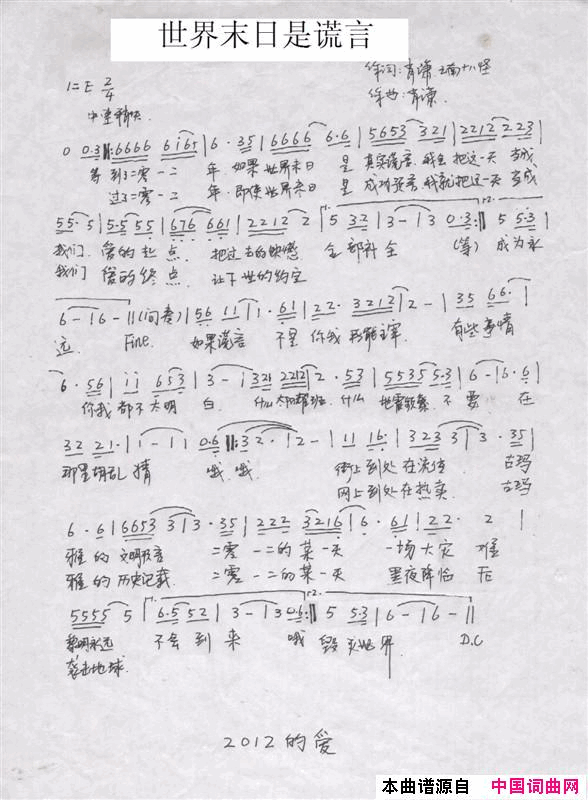 世界末日是谎言
1=E 2/4
中速稍快
作词:肖谏
作曲:肖谏
0 0.3 |: 6666 6i65 | 6 . 35 | 6666 6.6 | 5653 321 | 2212 223 |
等到二零一二 年 如果世界末日 是 真实谎言 我会把这一天 当成
过了二零一二 年 即使世界末日 是 成功预言 我就把这一天 当成
55. 5 | 5.5 55 | 676 661 | 2212 2 | 5 32 | 3 - | 3 0.3 :| 5 5.3 |
我们 爱的起点 把过去的缺憾 全部补全 (等) 成为永
我们 爱的终点 让下世的约定
6 - | 6 - || (间奏) | 56 11 | 1 . 61 | 22. 3212 | 2 - | 35 66. |
远 Fine. 如果谎言 不是 你我 能主宰 有些事情
6 . 56 | ii 653 | 3 - | 321 2212 | 2 . 53 | 5535 5.3 | 6 - | 6 . 6 |
你我都不太明 白 什么 什么 地震 不要 在
32 21. | 1 - | 1 0.6 |: 32 . | 2 - | 11 16. | 323 3 | 3 . 35 |
那里胡乱猜 哦 哦 街上到处在流传 古玛
网上到处在热卖 古玛
6 . 6 | 6653 3 | 3 . 35 | 222 3216 | 6 . 61 | 22. 2 |
雅的文明预言 二零一二的某一天 一场大灾难
雅的历史记载 二零一二的某一天 黑夜降临 后
5555 5 | 6.5 52 | 3 - | 3 0.6 :| 5 5.3 | 6 - | 6 - ||
黎明永远 不会到来 哦 毁灭世界 D.C
袭击地球
2012的爱
本曲谱源自 中国词曲网